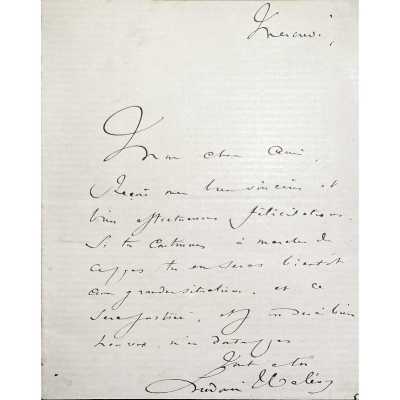 Mercredi,
Mon cher Ami,
Reçois mes bien sincères et
bien affectueuses félicitations.
Si tu continues à marcher de
ce pas tu en seras bientôt
aux grandes situations, et ce
sera justice, et j'en serai bien
heureux,
Tout à toi
Ludovic Halévy